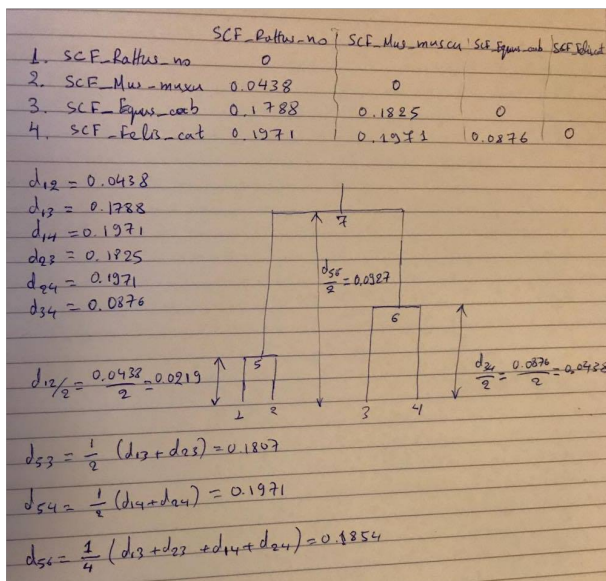 SCF_Rattus_no SCF_Mus_muscu SCF_Equus_cab SCF_Feliscat
1. SCF_Rattus_no 0
2. SCF_Mus_muscu 0.0438 0
3. SCF_Equus_cab 0.1788 0.1825 0
4. SCF_Felis_cat 0.1971 0.1971 0.0876 0
d12 = 0.0438
d13 = 0.1788
d14 = 0.1971
d23 = 0.1825
d24 = 0.1971
d34 = 0.0876
7
d56/2 = 0.0927
6
5
d12/2 = 0.0438/2 = 0.0219
d34/2 = 0.0876/2 = 0.0438
1 2 3 4
d53 = 1/2 (d13 + d23) = 0.1807
d54 = 1/2 (d14 + d24) = 0.1971
d56 = 1/4 (d13 + d23 + d14 + d24) = 0.1854